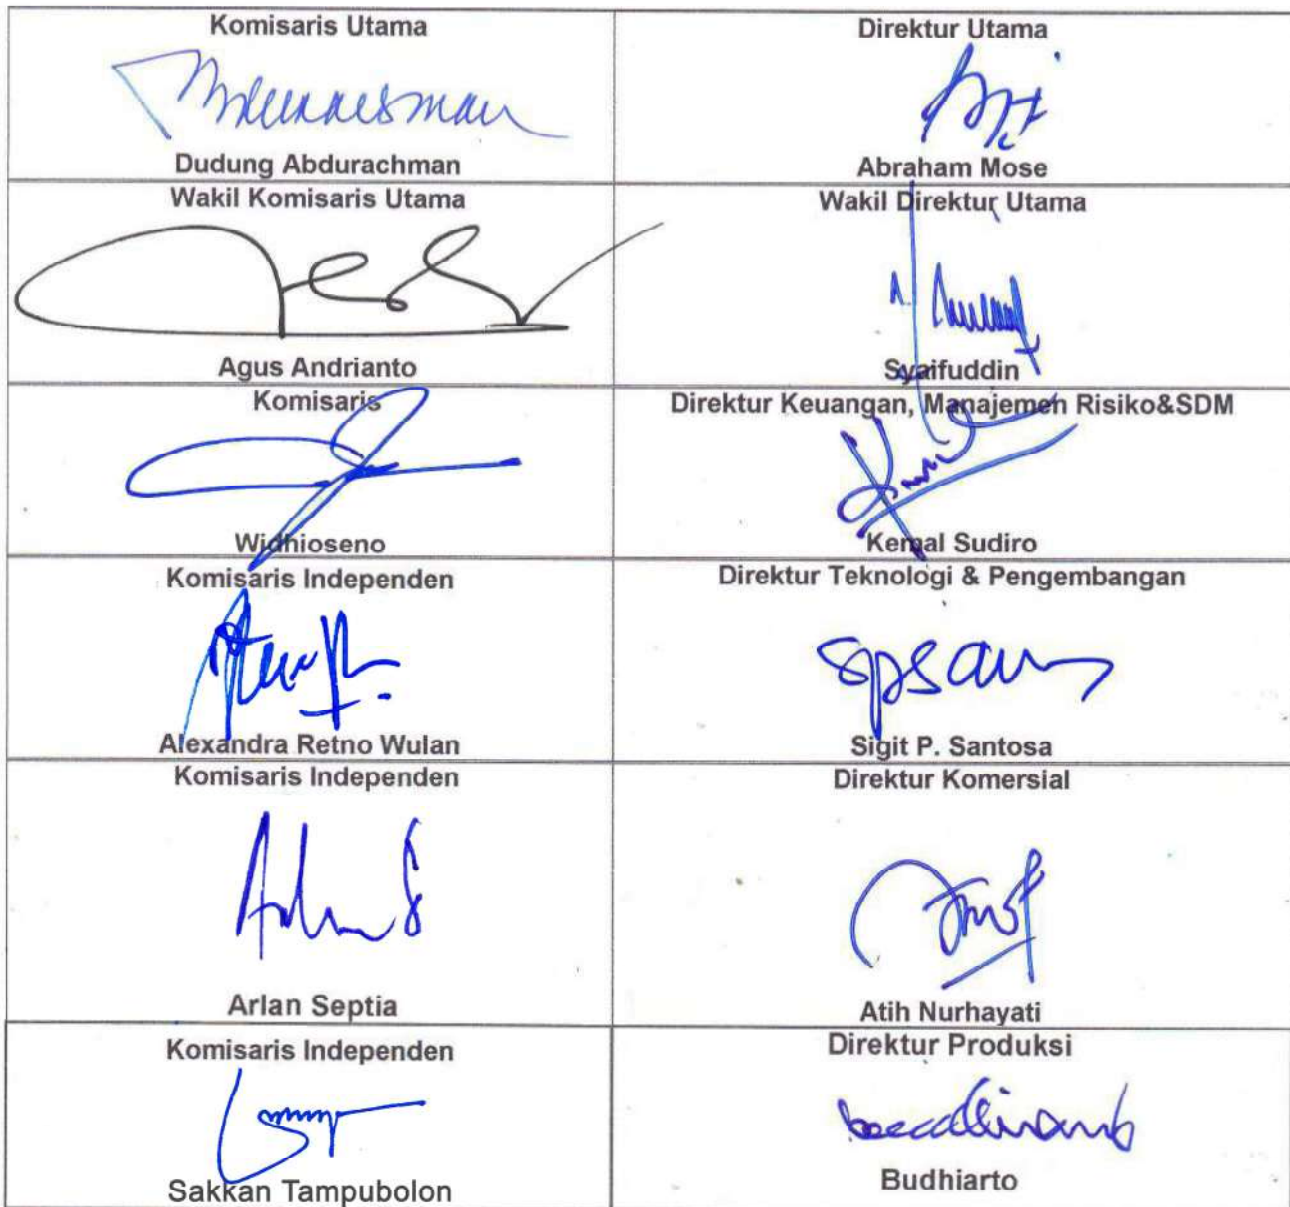 Komisaris Utama
Dudung Abdurachman
Direktur Utama
Abraham Mose
Wakil Komisaris Utama
Agus Andrianto
Wakil Direktur Utama
Syaifuddin
Komisaris
Widhioseno
Direktur Keuangan, Manajemen Risiko&SDM
Kemal Sudiro
Komisaris Independen
Alexandra Retno Wulan
Direktur Teknologi & Pengembangan
Sigit P. Santosa
Komisaris Independen
Arlan Septia
Direktur Komersial
Atih Nurhayati
Komisaris Independen
Sakkan Tampubolon
Direktur Produksi
Budhiarto